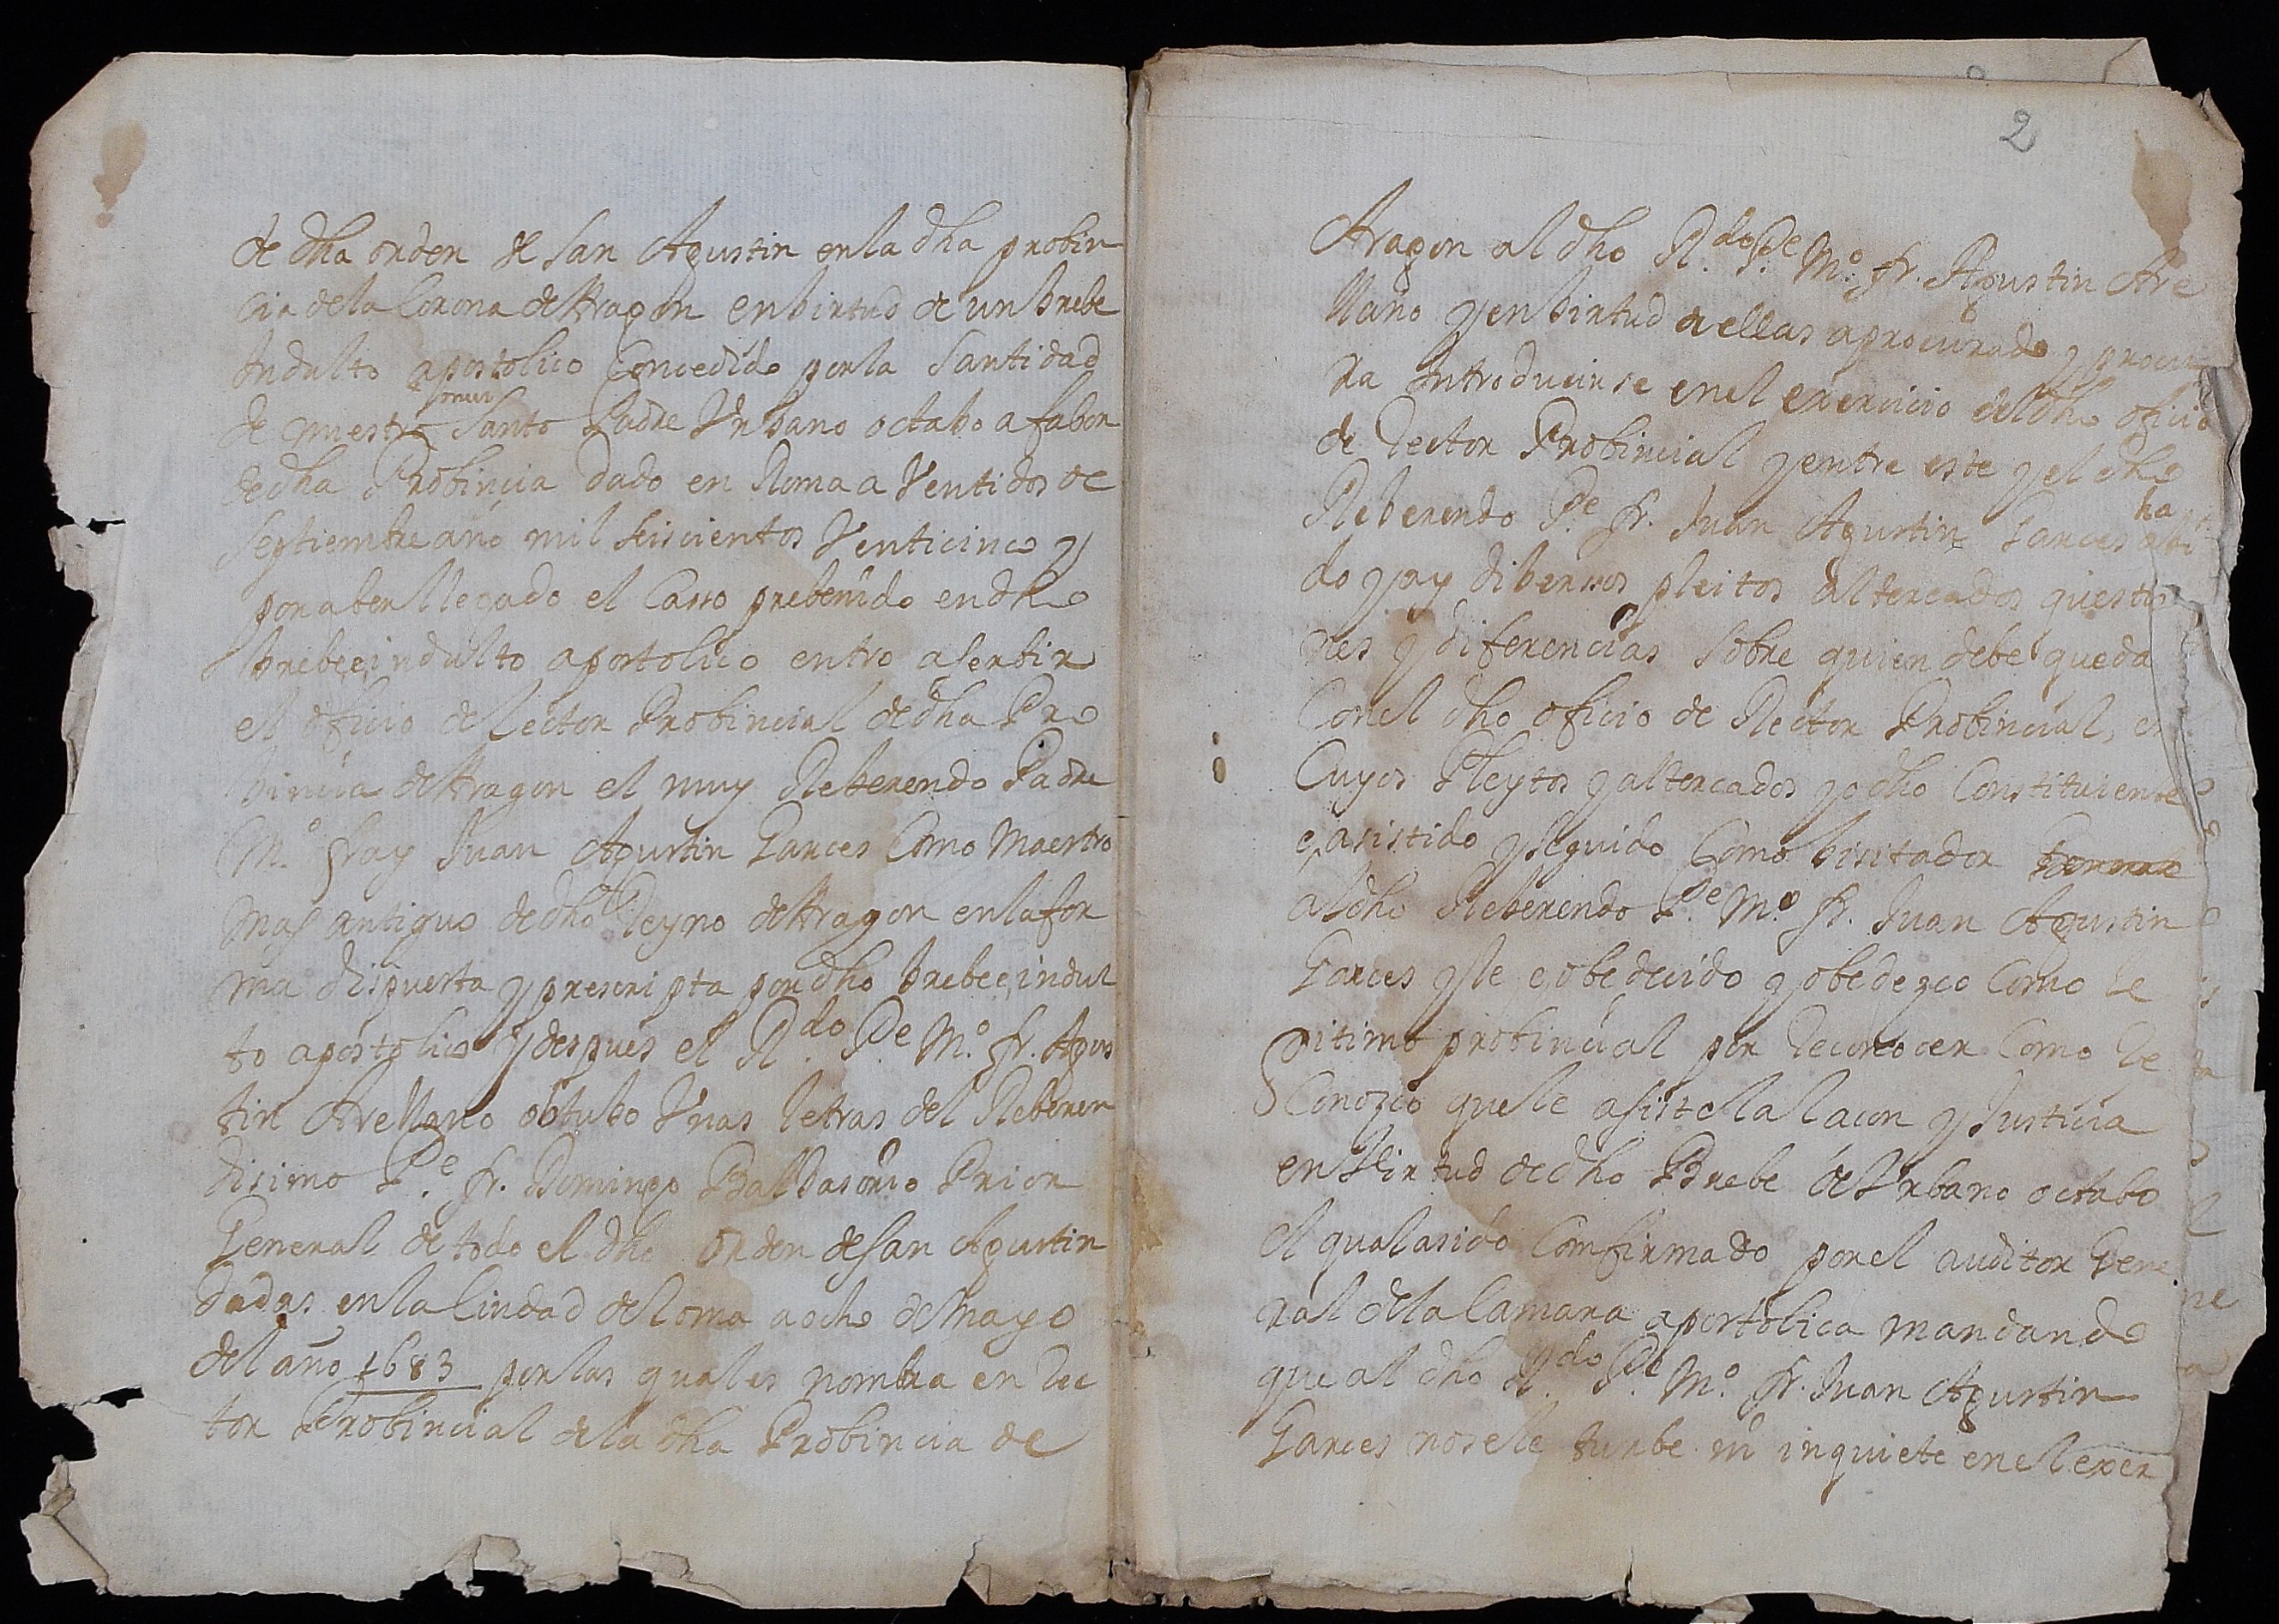 de dha orden de san Agustin en la dha probin
cia de la Corona de Aragon en birtud de un brebe
Indulto apostolico Concedido por la Santidad
de nuestro Santo Padre Urbano octabo a fabor
de dha Probincia dado en Roma a Ventidos de
Septiembre año mil seiscientos Venticinco y
por aber llegado el Casso prebenido en dho
brebe e indulto apostolico entro a serbir
el oficio de Rector Probincial de dha Pro
bincia de Aragon el muy Reberendo Padre
M.º fray Juan Agustin Garces Como Maestro
mas antiguo de dho Reyno de Aragon en la for
ma dispuesta y prescripta por dho brebe e indul
to apostolico y despues el R.do P.e M.º fr. Agus
tin Arellano obtubo Unas letras del Reberen
disimo P.e fr. Domingo Baldasorio Prior
General de todo el dho orden de san Agustin
dadas en la Ciudad de Roma a ocho de Mayo
del año 1683 por las quales nombra en Rec
tor Probincial de la dha Probincia de
2
Aragon al dho R.do P.e M.º fr. Agustin Are
llano y en birtud de ellas a procurado y procu
ra introducirse en el exercicio del dho oficio
de Rector Probincial y entre este y el dho
Reberendo P.e fr. Juan Agustin Garces ha abi
do y ay dibersos pleitos altercados questio
nes y diferencias sobre quien debe queda
Con el dho oficio de Rector Probincial, en
Cuyos Pleytos y altercados yo dho Constituiente
e asistido y seguido Como bisitador
al dho Reberendo P.e M.º fr. Juan Agustin
Garces y le e obedecido y obedezco Como le
gitimo probincial por reconocer Como re
Conozco que le asiste la Racon y Justicia
en Virtud de dho Brebe de Urbano octabo
el qual a sido Confirmado por el auditor Gene
ral de la Camara apostolica mandando
que al dho R.do P.e M.º fr. Juan Agustin
Garces no se le turbe ni inquiete en el exer